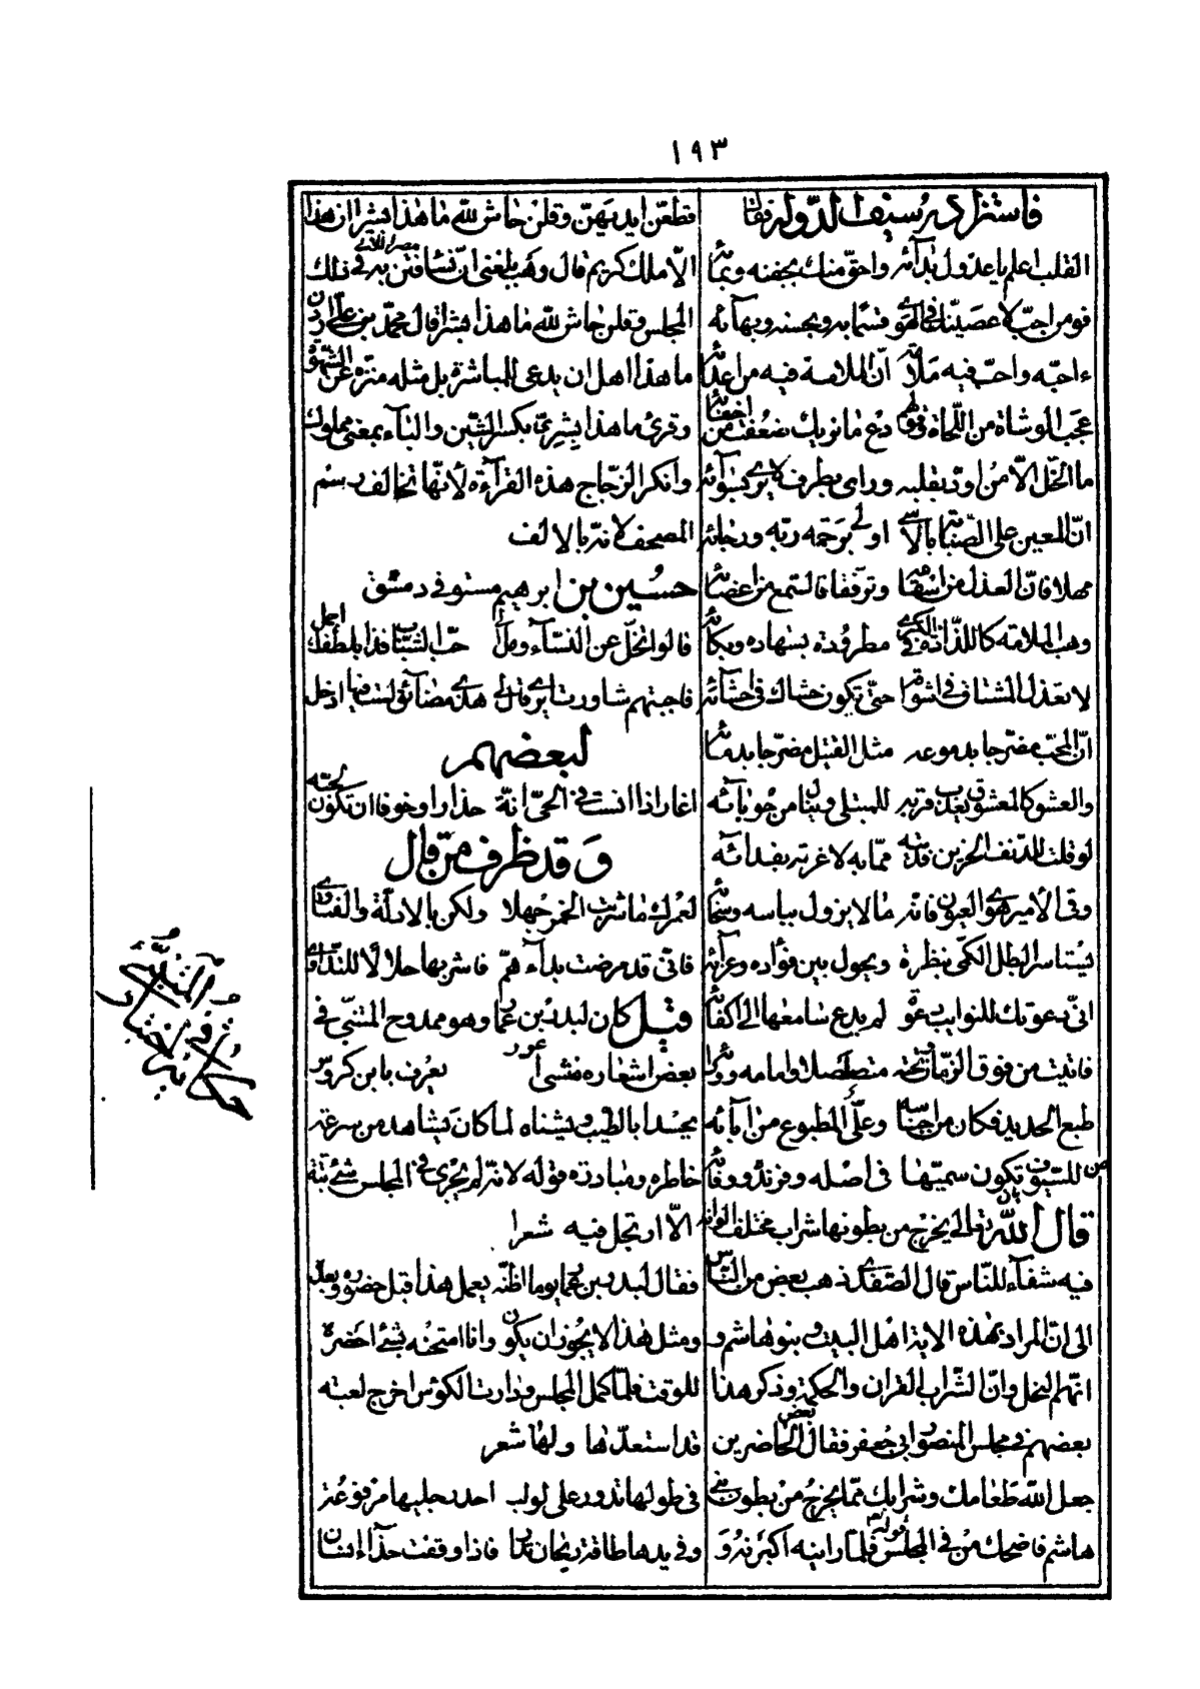 ١٩٣
فاستزاده سيف الدولة فقال
القلب اعلم يا عذول بدآئه واحق منك بجفنه وبمآئه
فومن احب لاعصينك فى الهوى قسما به وبحسنه وبهآئه
ءاحبه واحب فيه ملامة ان الملامة فيه من اعدآئه
عجب الوشاة من اللحاة وقولهم دع ما نريك ضعفت من اخفآئه
ما الخل الا من اود بقلبه وارى بطرف لا يرى بسوآئه
ان المعين على الصبابة بالاسى اولى برحمة ربه ورخآئه
مهلا فان العذل من اسقامه وترفقا فالسمع من اعضآئه
وهب الملامة كاللذاذة فى الكرى مطرودة بسهاده وبكآئه
لا تعذل المشتاق فى اشواقه حتى تكون حشاك فى احشآئه
ان المحب مضرجا بدموعه مثل القتيل مضرجا بدمآئه
والعشق كالمعشوق يعذب قربه للمبتلى وينال من حوبآئه
لو قلت للدنف الحزين فديته مما به لاغرته بفدآئه
وقى الامير هوى العيون فانه ما لا يزول بباسه وسخآئه
يستاسر البطل الكمى بنظرة ويحول بين فؤاده وعزآئه
انى دعوتك للنوايب دعوة لم يدع سامعها الى اكفآئه
فاتيت من فوق الزمان وتحته متصلصلا وامامه وورآئه
طبع الحديد فكان من اجناسه وعلى المطبوع من اٰبآئه
من للسيوف بان تكون سميها فى اصله وفرنده ووفآئه
قال الله تعالى يخرج من بطونها شراب مختلف الوانه
فيه شفآء للناس قال الصفدى ذهب بعض من الناس
الى ان المراد بهذه الاية اهل البيت وبنو هاشم و
انهم النحل وان الشراب القران والحكمة وذكر هذا
بعضهم فى مجلس المنصور ابى جعفر فقال بعض الحاضرين
جعل الله طعامك وشرابك مما يخرج من بطون بنى
هاشم فاضحك من فى المجلس قوله فلما راينه اكبرنه و
قطعن ايديهن وقلن حاش لله ما هذا بشرا ان هذا
الا ملك كريم قال وهب بلغنى ان نسا من مصر اللاتى فتن به فى ذلك
المجلس وقلن حاش لله ما هذا بشرا قال محمد بن على اردن
ما هذا اهل ان يدعى للمباشرة بل مثله منزه عن الشهوة
وقرئ ما هذا بشرى بكسر الشين والبآء بمعنى مملوك
وانكر الزجاج هذه القرآءة لانها تخالف رسم
المصحف لانه بالالف
حسين بن ابرهيم مستوفى دمشق
قالوا تخل عن النسآء ومل الى حب الشباب فذا بلطفك اجمل
فاجبتهم شاورت ايرى قال لى هذى مضائق لست فيها ادخل
لبعضهم
اغار اذا انست فى الحى انة حذارا وخوفا ان تكون لحبه
وقد ظرف من قال
لعمرك ما شربت الخمر جهلا ولكن بالادلة والفتاوى
فانى قد مرضت بدآء هم فاشربها حلالا للتداوى
قيل كان لبدر بن عمار وهو ممدوح المتنبى فى
بعض اشعاره منشى اعور يعرف بابن كروس
يحسد ابا الطيب ويشناه لما كان يشاهد من سرعة
خاطره ومبادرة قوله لانه لم يجرى فى المجلس شئ بتة
الا ارتجل فيه شعرا
فقال لبدر بن عمار يوما اظنه يعمل هذا قبل حضوره وبعده
ومثل هذا لا يجوز ان يكون وانا امتحنه بشئ احضره
للوقت فلما كمل المجلس ودارت الكؤس اخرج لعبة
قد استعدها ولها شعر
فى طولها تدور على لولب احد رجليها مرفوعة
وفى يدها طاقة ريحان تدار فاذا وقفت حذآء انسان